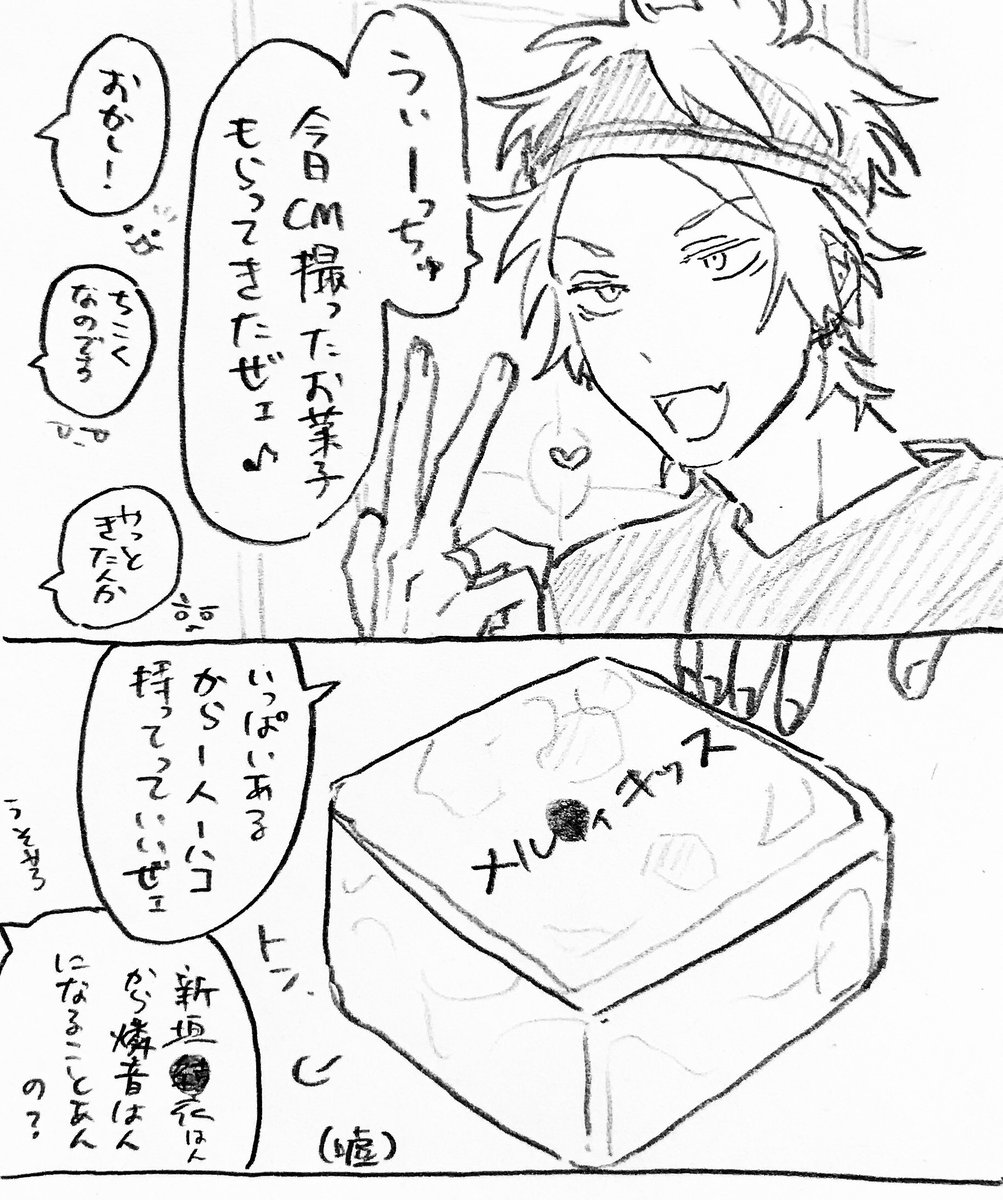 うぃーっちゅ
今日CM撮ったお菓子
もらってきたぜェ♪
おかし!
ちこく
なのでう
やっと
きたんか
メル●ィキッス
いっぱいある
から一人一ハコ
持ってっていいぜェ
うそやろ
トン
新垣●衣はん
から燐音はん
になることあん
の?
(嘘)